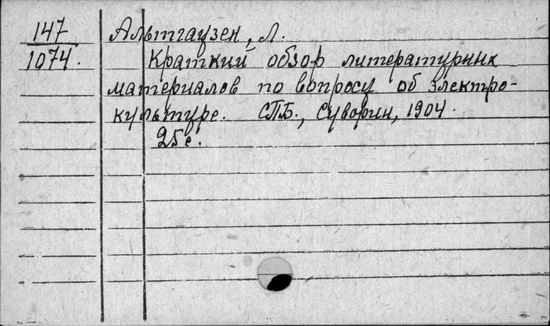 147
1074.
Альтгаузен, Л.
Краткий обзор литературных
материалов по вопросу об электро-
культуре. СПБ., Суворин, 1904.
25с.